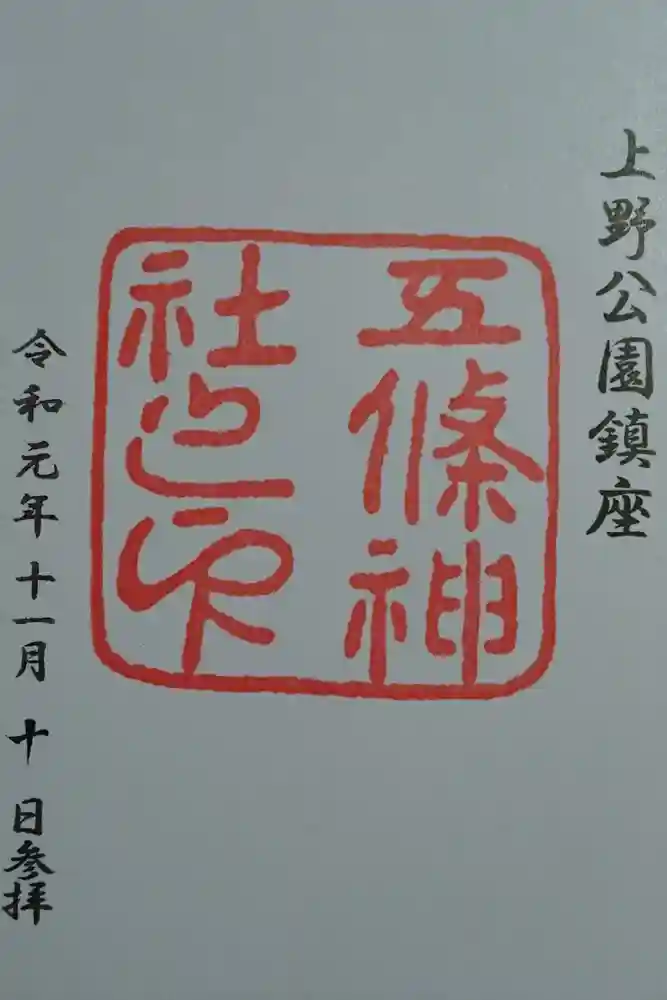 上野公園鎮座
五條神
社之印
令和元年十一月十日参拝